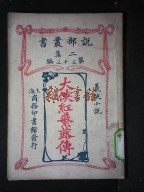 說部叢書
二集
第三十三編
義俠小說
大俠紅蘩蕗傳
上海商務印書館發行